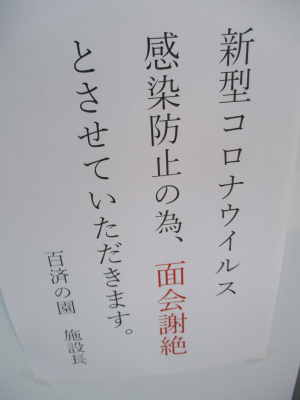 新型コロナウイルス
感染防止の為、面会謝絶
とさせていただきます。
百済の園　施設長